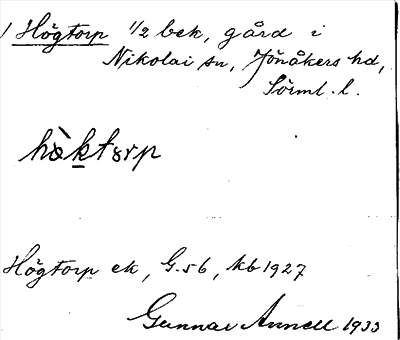 / Högtorp 1/2 bek, gård i
Nikolai sn, Jönåkers hd,
Sörml. l.
hæ̀ktɔrp
Högtorp ek, G. 56, kb 1927
Gunnar Annell 1933